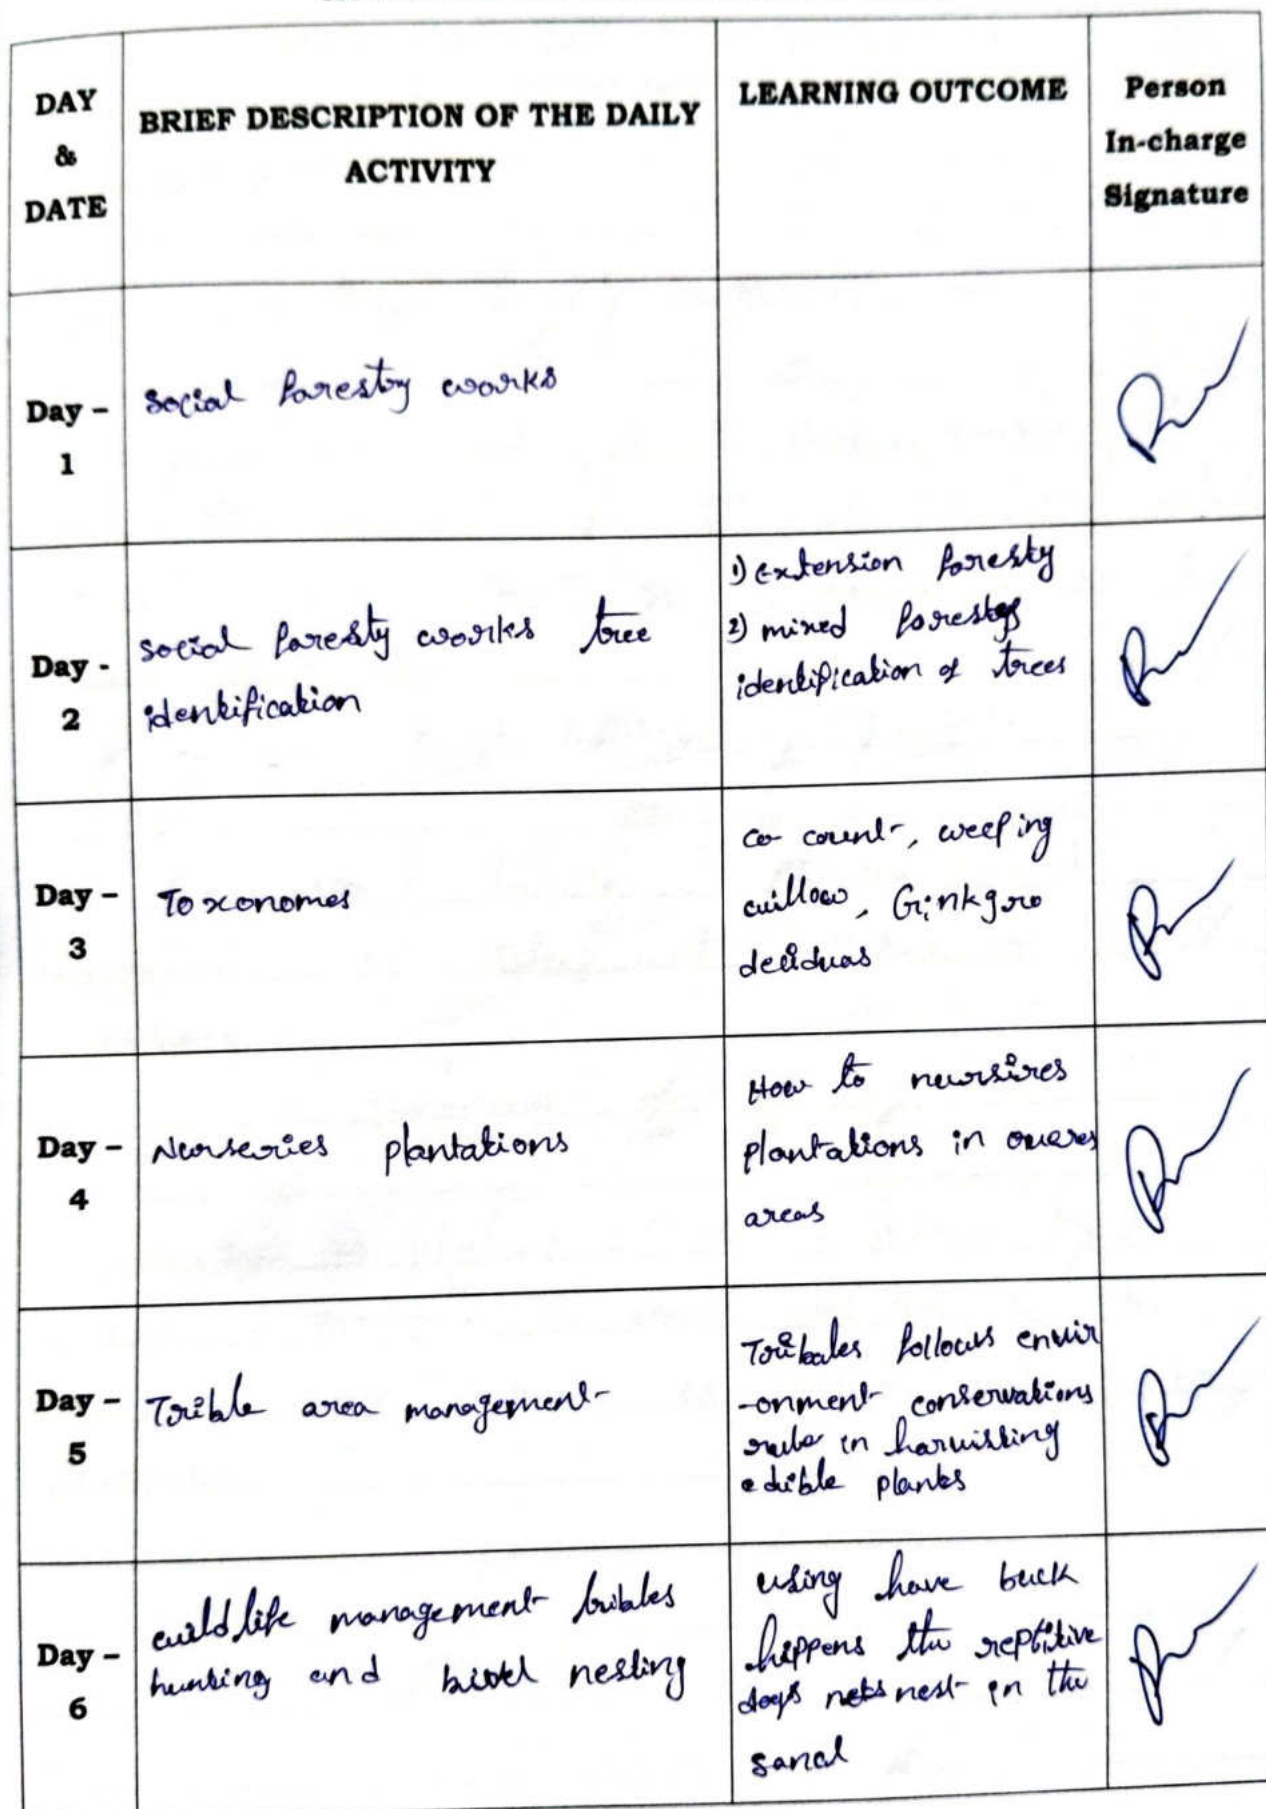 DAY
&
DATE
BRIEF DESCRIPTION OF THE DAILY
ACTIVITY
LEARNING OUTCOME
Person
In-charge
Signature
Day -
1
social forestry works
Day -
2
social foresty works tree
identification
1) extension foresty
2) mixed
identification of trees
Day -
3
Toxonomes
weeping
willow, Ginkgro
Day -
4
Nurseries plantations
How to
plantations in
areas
Day -
5
Trible area management
Tribales follows envir
-onment conservations
in
edible plants
Day -
6
wild life management tribles
hunting and nesting
using have buck
hippens the
nest in the
sand